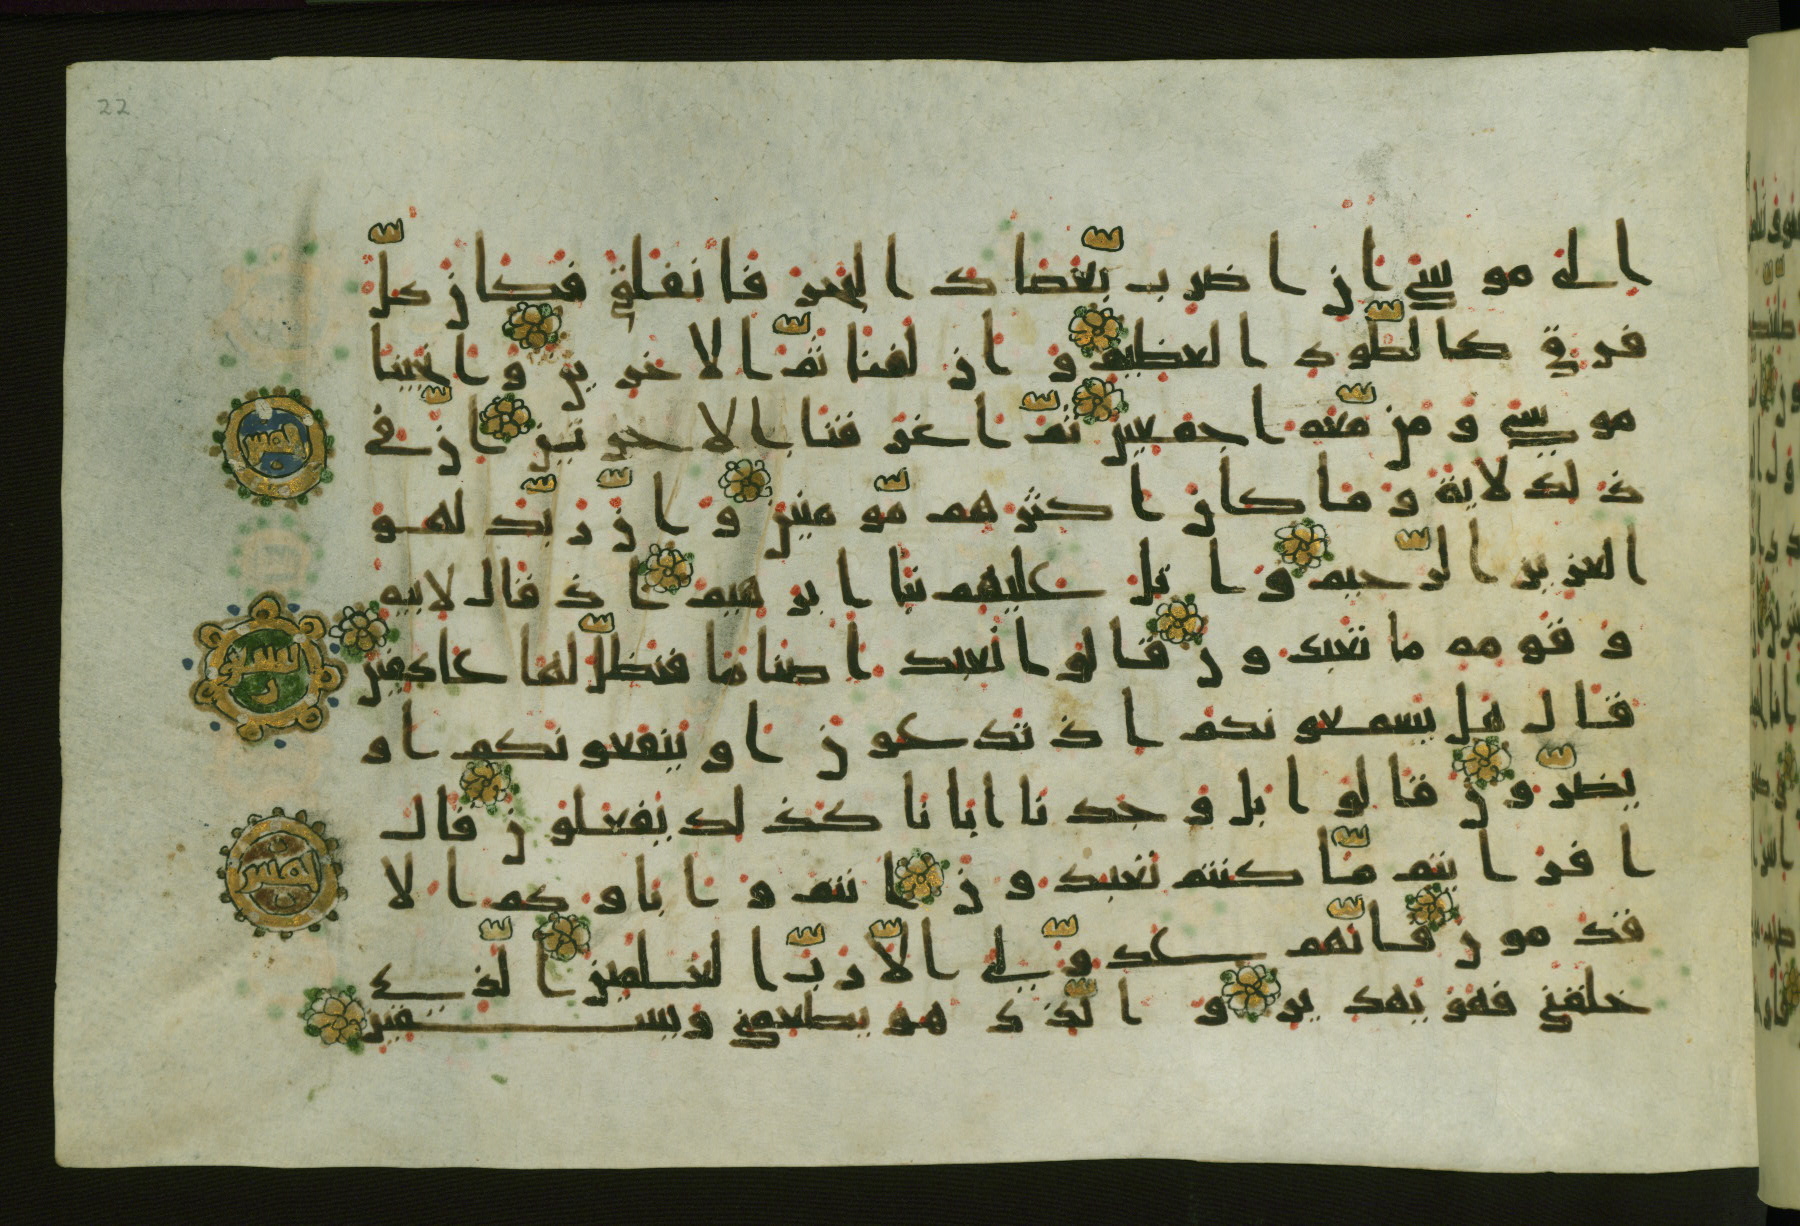 22
الى موسى ان اضرب بعصاك البحر فانفلق فكان كل
فرق كالطود العظيم وازلفنا ثم الاخرين وانجينا
موسى ومن معه اجمعين ثم اغرقنا الاخرين ان في
ذلك لاية وما كان اكثرهم مومنين وان ربك لهو
العزيز الرحيم واتل عليهم نبا ابرهيم اذ قال لابيه
وقومه ما تعبدون قالوا نعبد اصناما فنظل لها عاكفين
قال هل يسمعونكم اذ تدعون او ينفعونكم او
يضرون قالوا بل وجدنا ابانا كذلك يفعلون قال
افرايتم ما كنتم تعبدون انتم واباوكم الا
قدمون فانهم عدو لي الا رب العلمين الذي
خلقني فهو يهدين والذي هو يطعمني ويسقين